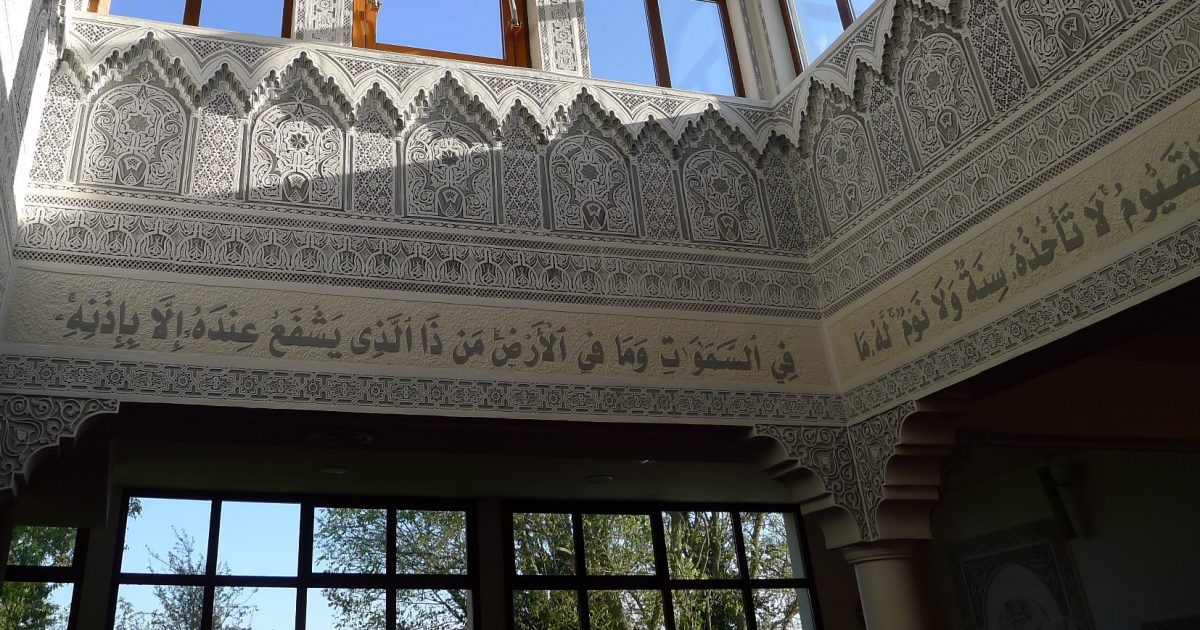 ٱلْقَيُّومُ لَا تَأْخُذُهُۥ سِنَةٌ وَلَا نَوْمٌ لَّهُۥ مَا
فِي ٱلسَّمَٰوَٰتِ وَمَا فِي ٱلْأَرْضِ مَن ذَا ٱلَّذِي يَشْفَعُ عِندَهُۥ إِلَّا بِإِذْنِهِۦ